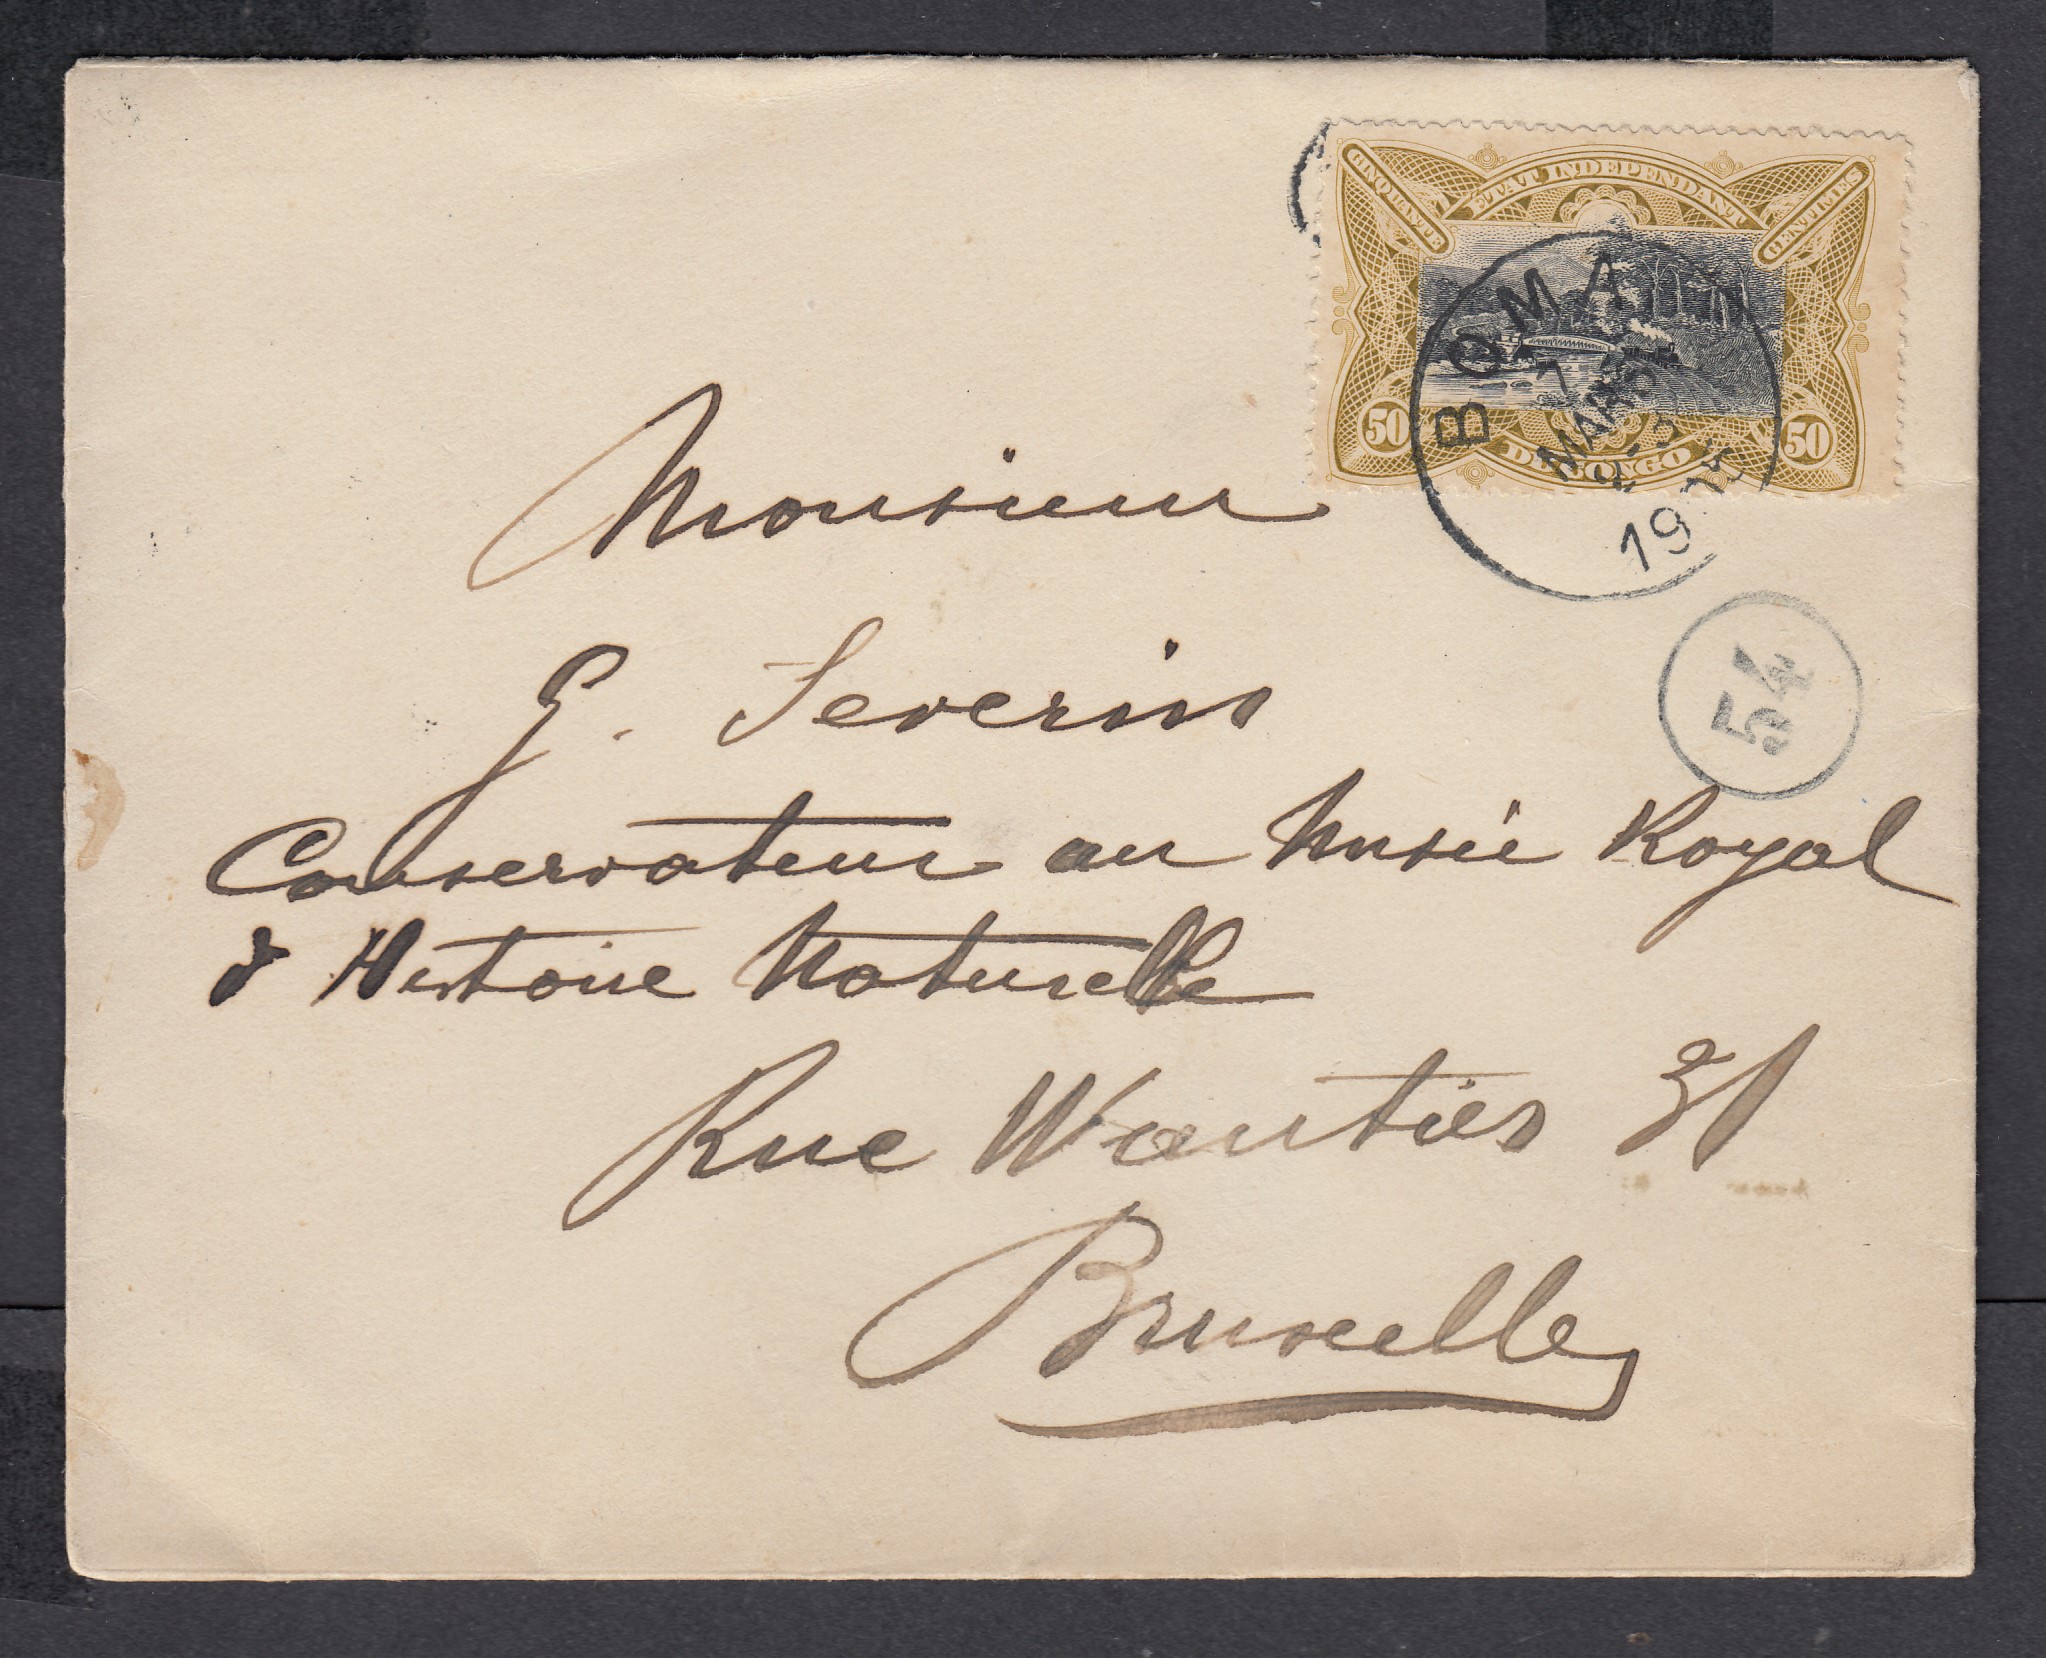 CINQUANTE
ETAT INDEPENDANT
CENTIMES
50
DU CONGO
50
BOMA
7
MARS
19
54
Monsieur
G. Severin
Conservateur au Musée Royal
d'Histoire Naturelle
Rue Wautier 31
Bruxelles